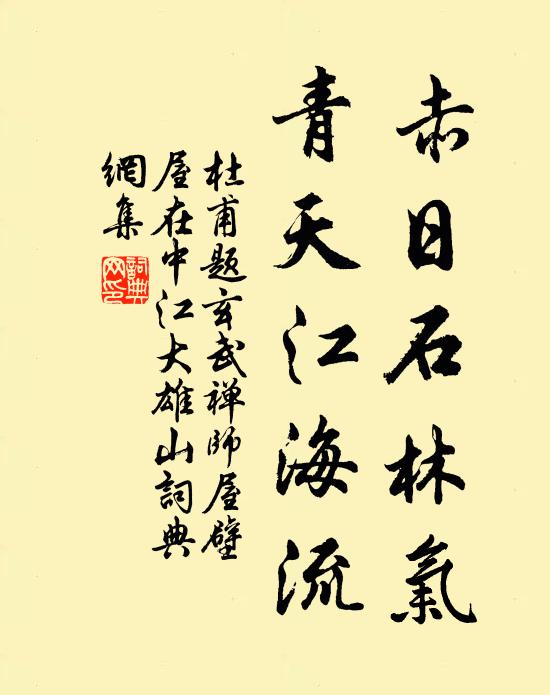 赤日石林氣
青天江海流
杜甫題玄武禪師屋壁
屋在中江大雄山詞典
網集
詞典
网印